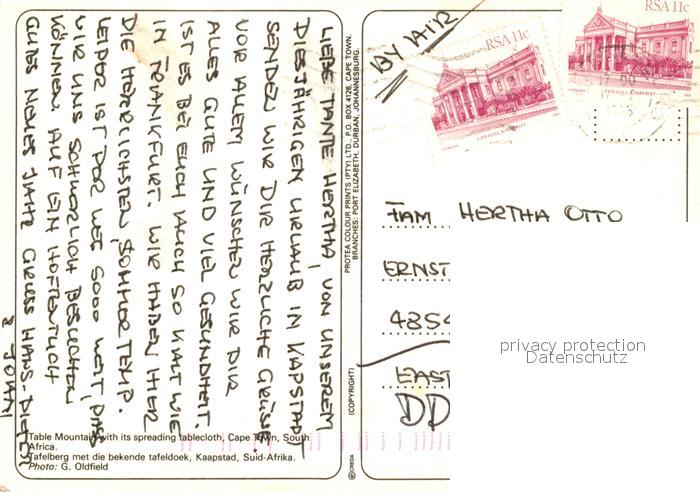 LIEBE TANTE HERTHA, VON UNSEREM
DIESJÄHRIGEN URLAUB IN KAPSTADT
SENDEN WIR DIR HERZLICHE GRÜSSE.
VOR ALLEM WÜNSCHEN WIR DIR
ALLES GUTE UND VIEL GESUNDHEIT.
IST ES BEI EUCH AUCH SO KALT WIE
IN FRANKFURT. WIR HABEN HIER
DIE HERRLICHSTEN SOMMERTEMP.
LEIDER IST DER WEG SOOO WEIT, DASS
WIR UNS SCHWERLICH BESUCHEN
KÖNNEN. AUF EIN HOFFENTLICH
GUTES NEUES JAHR GRUSS HANS-DIETER
& JOHN
Table Mountain with its spreading tablecloth, Cape Town, South
Africa.
Tafelberg met die bekende tafeldoek, Kaapstad, Suid-Afrika.
Photo: G. Oldfield
PROTEA COLOUR PRINTS (PTY) LTD. P.O. BOX 4126, CAPE TOWN.
BRANCHES: PORT ELIZABETH, DURBAN, JOHANNESBURG.
(COPYRIGHT)
©CREDA
BY AIR
RSA 11c
CITY HALL, KIMBERLEY
RSA 11c
CITY HALL, KIMBERLEY
FAM HERTHA OTTO
ERNST
4854
EAST
DD
privacy protection
Datenschutz